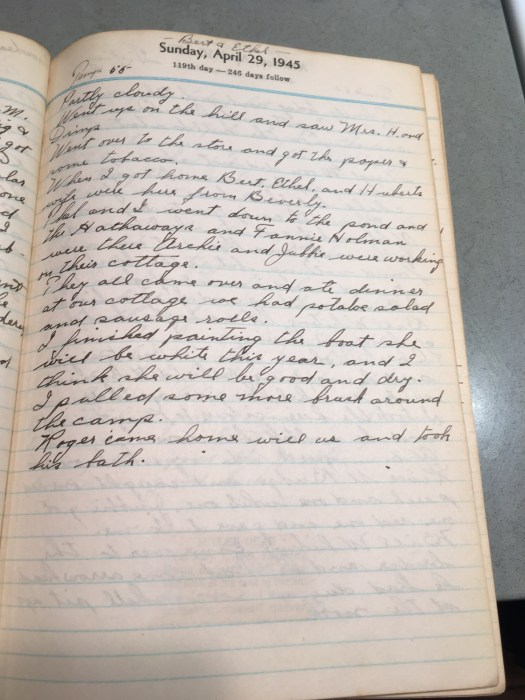 — Bert & Ethel —
Sunday, April 29, 1945
119th day — 246 days follow
Temp 55
Partly cloudy.
Went up on the hill and saw Mrs. H. and
Dimps
Went over to the store and got the papers &
some tobacco.
When I got home Bert, Ethel, and Huberts
wife were here from Beverly.
Phil and I went down to the pond and
the Hathaways and Fannie Holman
were there Archie and Jubbie were working
on their cottage.
They all came over and ate dinner
at our cottage we had potatoe salad
and sausage rolls.
I finished painting the boat she
will be white this year, and I
think she will be good and dry.
I pulled some more brush around
the camp.
Roger came home will us and took
his bath.